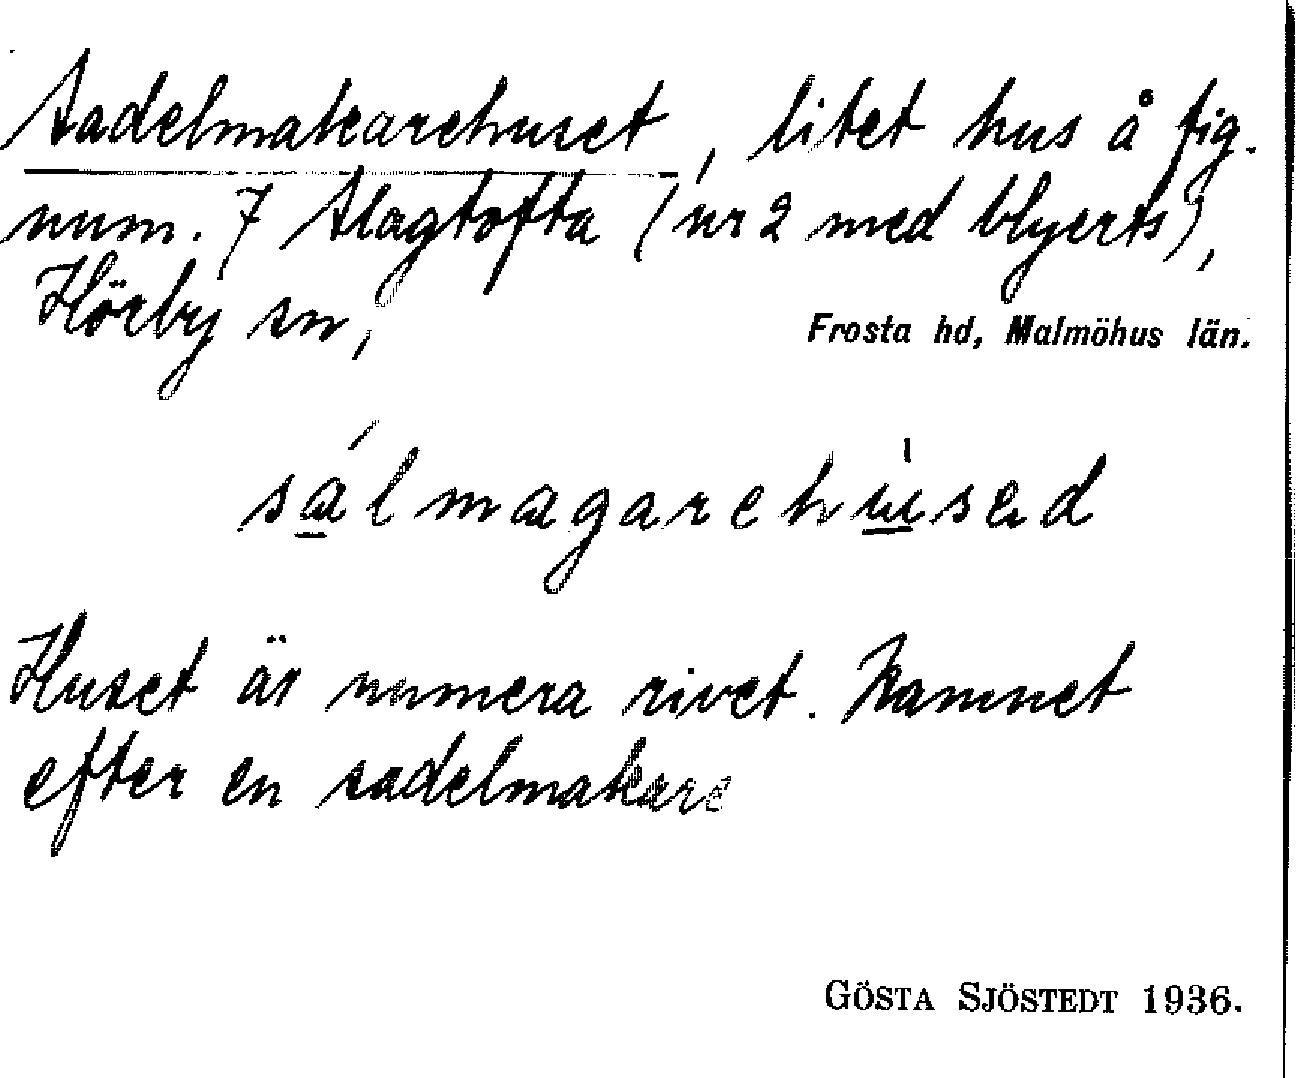 Sadelmakarehuset, litet hus å fig.
num. 7 Slagtofta (nr 2 med blyerts),
Hörby sn,
Frosta hd, Malmöhus län.
sálmagarehúsed
Huset är numera rivet. Namnet
efter en sadelmakare
GÖSTA SJÖSTEDT 1936.